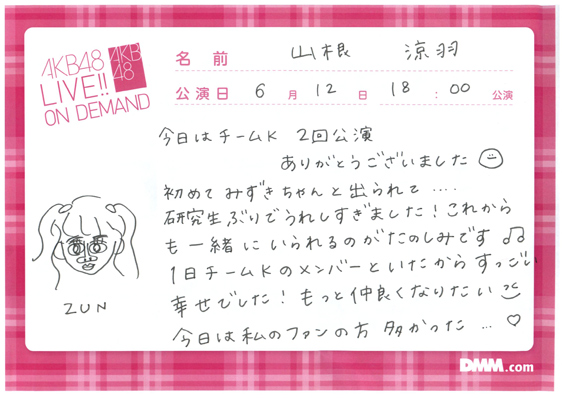 AKB48
LIVE!!
ON DEMAND
AKB
48
名前 山根 涼羽
公演日 6月12日 18:00公演
今日はチームK 2回公演
ありがとうございました
初めてみずきちゃんと出られて....
研究生ぶりでうれしすぎました!これから
も一緒にいられるのがたのしみです♫
1日チームKのメンバーといたからすっごい
幸せでした!もっと仲良くなりたい
今日は私のファンの方 多かった...♡
ZUN
DMM.com